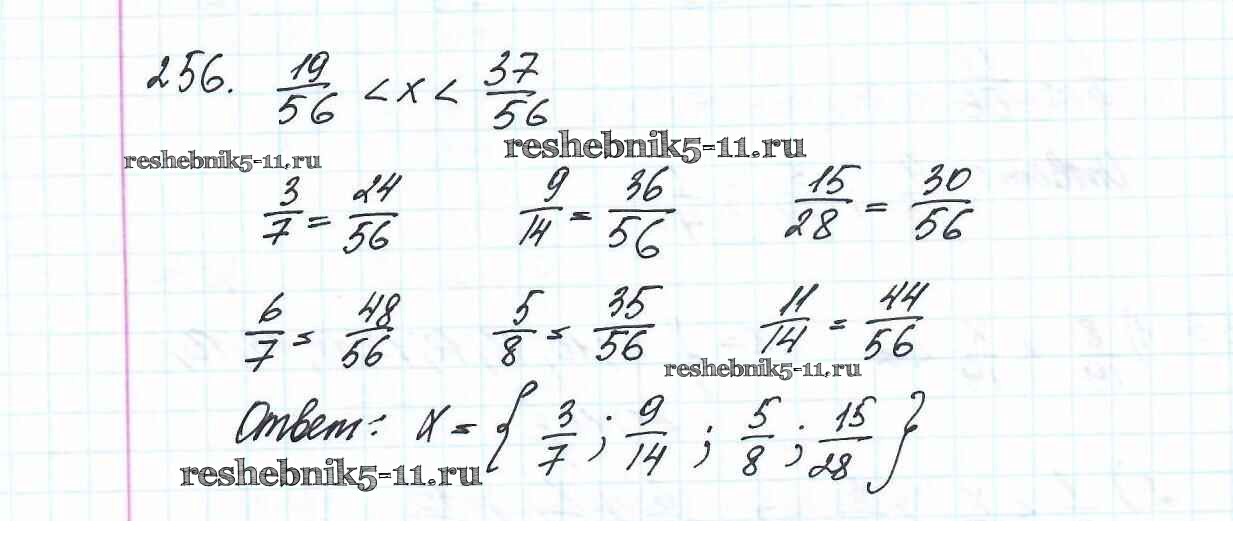 256. 19/56 < x < 37/56
reshebnik5-11.ru reshebnik5-11.ru
3/7 = 24/56 9/14 = 36/56 15/28 = 30/56
6/7 = 48/56 5/8 = 35/56 11/14 = 44/56
reshebnik5-11.ru
Ответ: x = { 3/7 ; 9/14 ; 5/8 ; 15/28 }
reshebnik5-11.ru